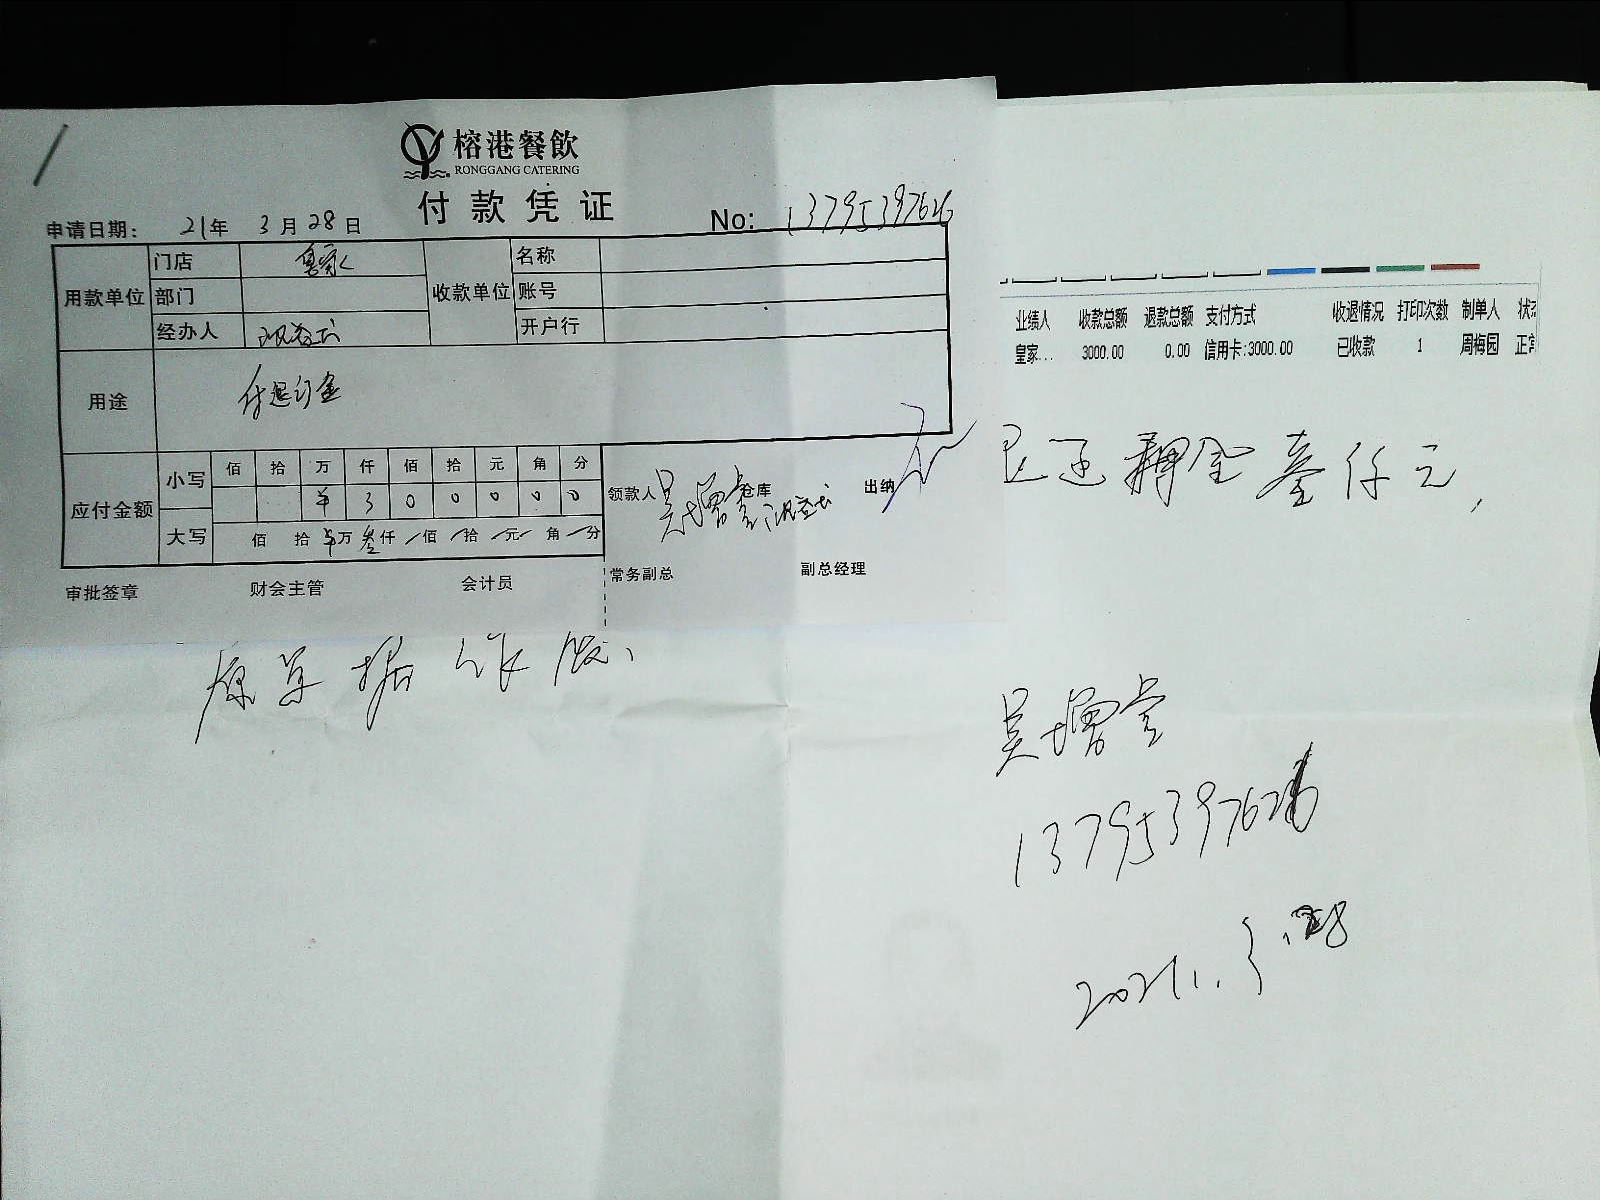 榕港餐飲
RONGGANG CATERING
付款凭证
申请日期: 21年 3月28日 No: 13795397626
用款单位 门店 收款单位 名称
部门 账号
经办人 开户行
用途 付退订金
应付金额 小写 佰 拾 万 仟 佰 拾 元 角 分
羊 3 0 0 0 0 0
大写 佰 拾 羊万 叁仟 佰 拾 元 角 分
领款人 吴增 仓库 出纳
常务副总 副总经理
审批签章 财会主管 会计员
原单据作废、
业绩人 收款总额 退款总额 支付方式 收退情况 打印次数 制单人
皇家... 3000.00 0.00 信用卡:3000.00 已收款 1 周梅园 正常
退还押金叁仟元,
吴增
13795397626
2021.3.28